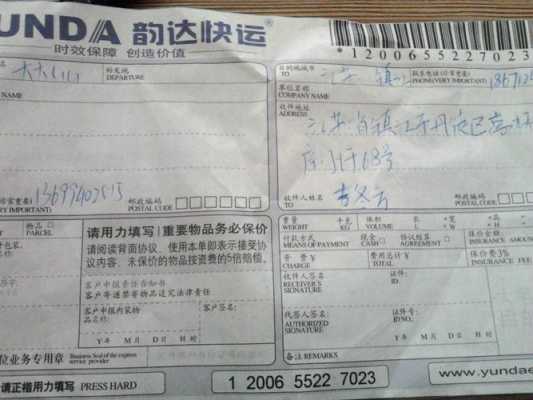 YUNDA 韵达快运®
时效保障 创造价值
1200655227023
始发地
DEPARTURE
NAME
目的地城市
TO 江苏 镇江
联系电话(非常重要)
PHONE(VERY IMPORTANT)
单位名称
COMPANY NAME
收件地址
ADDRESS
江苏省镇江市丹徒区高
68号
(非常重要)
VERY IMPORTANT) 13699402515
邮政编码
POSTAL CODE
收件人姓名
TO
邮政编码
POSTAL CODE
物品
PARCEL
请用力填写 重要物品务必保价
请阅读背面协议, 使用本单即表示接受协
议内容, 未保价的物品按资费的5倍赔偿。
客户申报责任告知书
客户寄递禁寄物品追究法律责任
客户申报内装物
品名
客户签名:
Y年 M月 D日 H时
重量
WEIGHT
千克
KG
体积
VOLUME
长
L
宽
W
高
H
付款方式
MEANS OF PAYMENT
现金
CASH
协议结算
AGREEMENT
保价金额
INSURANCE AMOUN
资费 ¥
CHARGE
费用总计¥
TOTAL
保价费3%
INSURANCE FEE
收件人签名
RECEIVER'S
SIGNATURE
证件:
ID.
代签人签名
AUTHORIZED
SIGNATURE
证件号
Y年 M月 D日 H时
备注 REMARKS
位业务专用章
Business Seal of the express
service provider
请正楷用力填写 PRESS HARD
1 2006 5522 7023
www.yundae